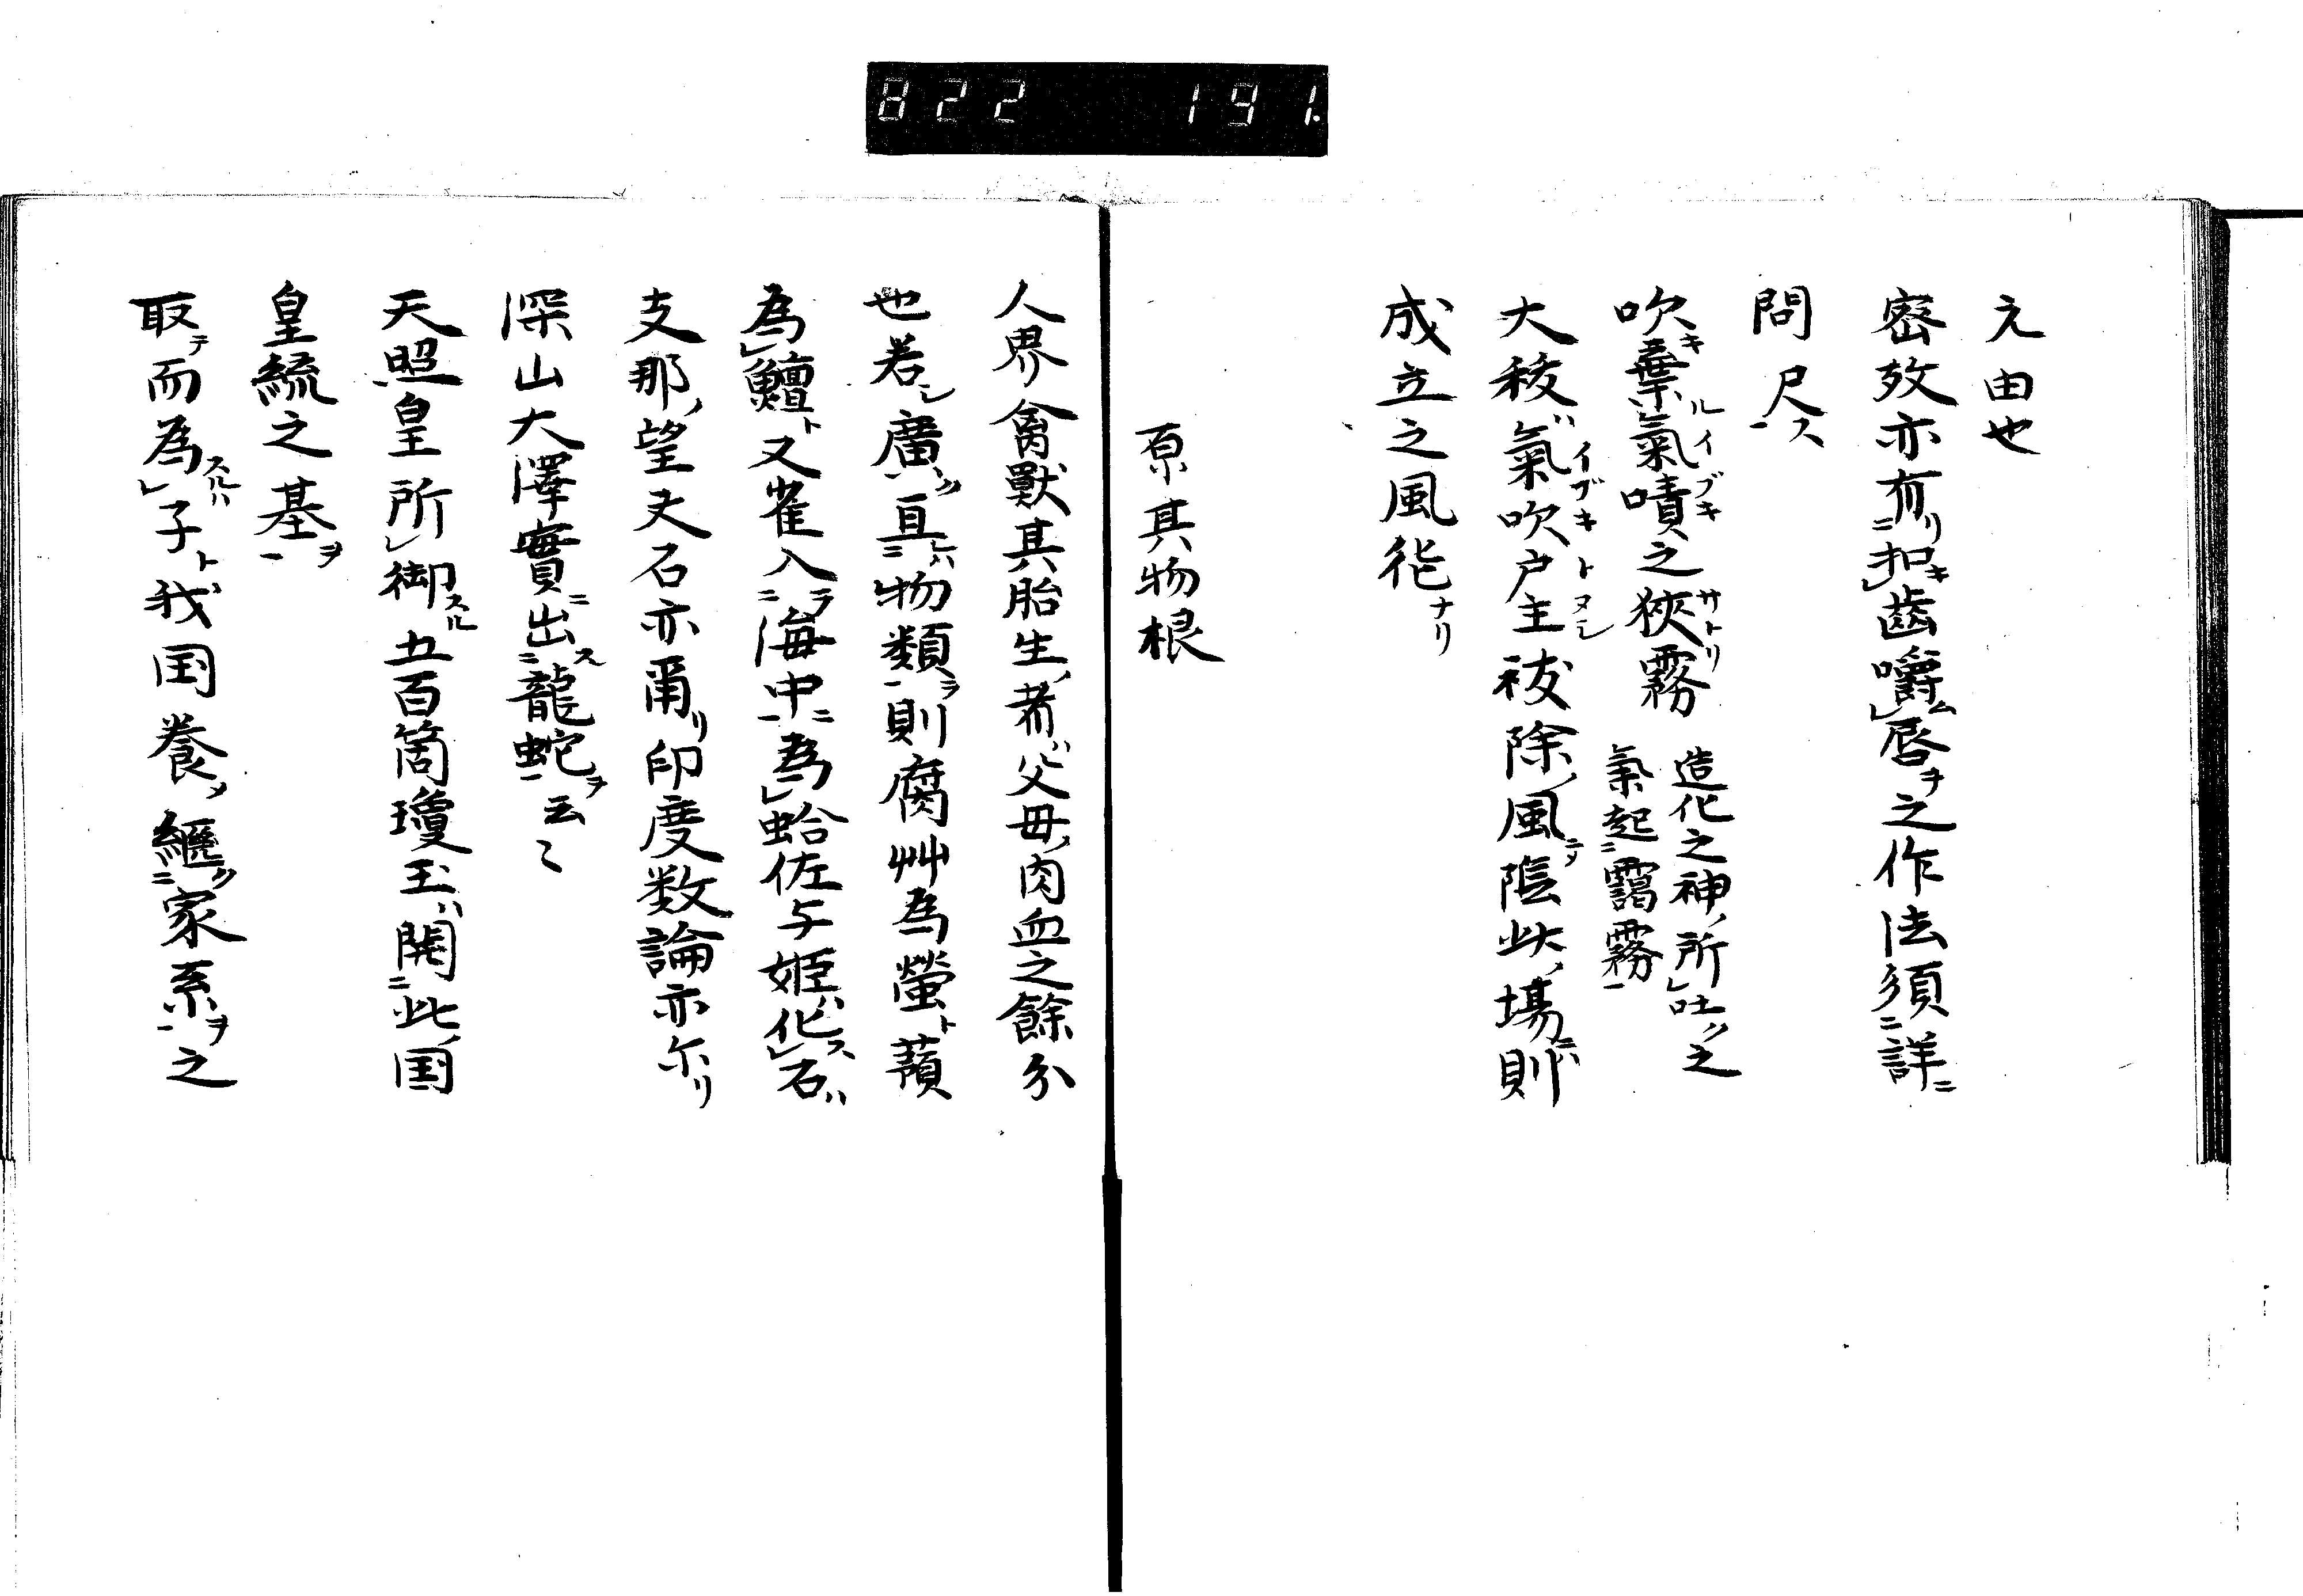 822 191.
元由也
密教亦有リ扣キ齒嚼ム唇ヲ之作法須詳ニ
問尺ス
吹キ棄ルイブキ氣噴之狹霧サトリ
造化之神ノ所吐ク之
氣起靄霧
大秡ノ氣吹戸主イブキトヌシ祓除ノ風ニ〆陰此ノ場ニハ則
成立之風化ナリ
原其物根
人界禽獸其胎生ノ者ハ父母ノ肉血之餘分
也若シ廣ク亘ヒハ物類ヲ則腐艸為螢ト蘋
為鱣ト又雀入ラ海中ニ為蛤佐与姫ハ化ス石ハ
支那ノ望夫石亦爾リ印度数論亦尓リ
深山大澤實ニ出ス龍蛇ヲ云〻
天照皇所御スル五百箇瓊玉ハ開此ノ国
皇統之基ヲ
取テ而為スルハ子ト我国養ノ繼ク家系ヲ之